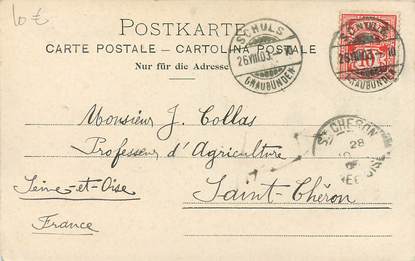 10 €
POSTKARTE
CARTE POSTALE – CARTOLINA POSTALE
Nur für die Adresse
SCHULS
26.VIII.03. – 10
GRAUBÜNDEN
SCHULS
26.VIII.03. – 10
GRAUBÜNDEN
10
Monsieur J. Collas
Professeur d'Agriculture
Saint-Chéron
Seine-et-Oise
France
ST CHERON
28